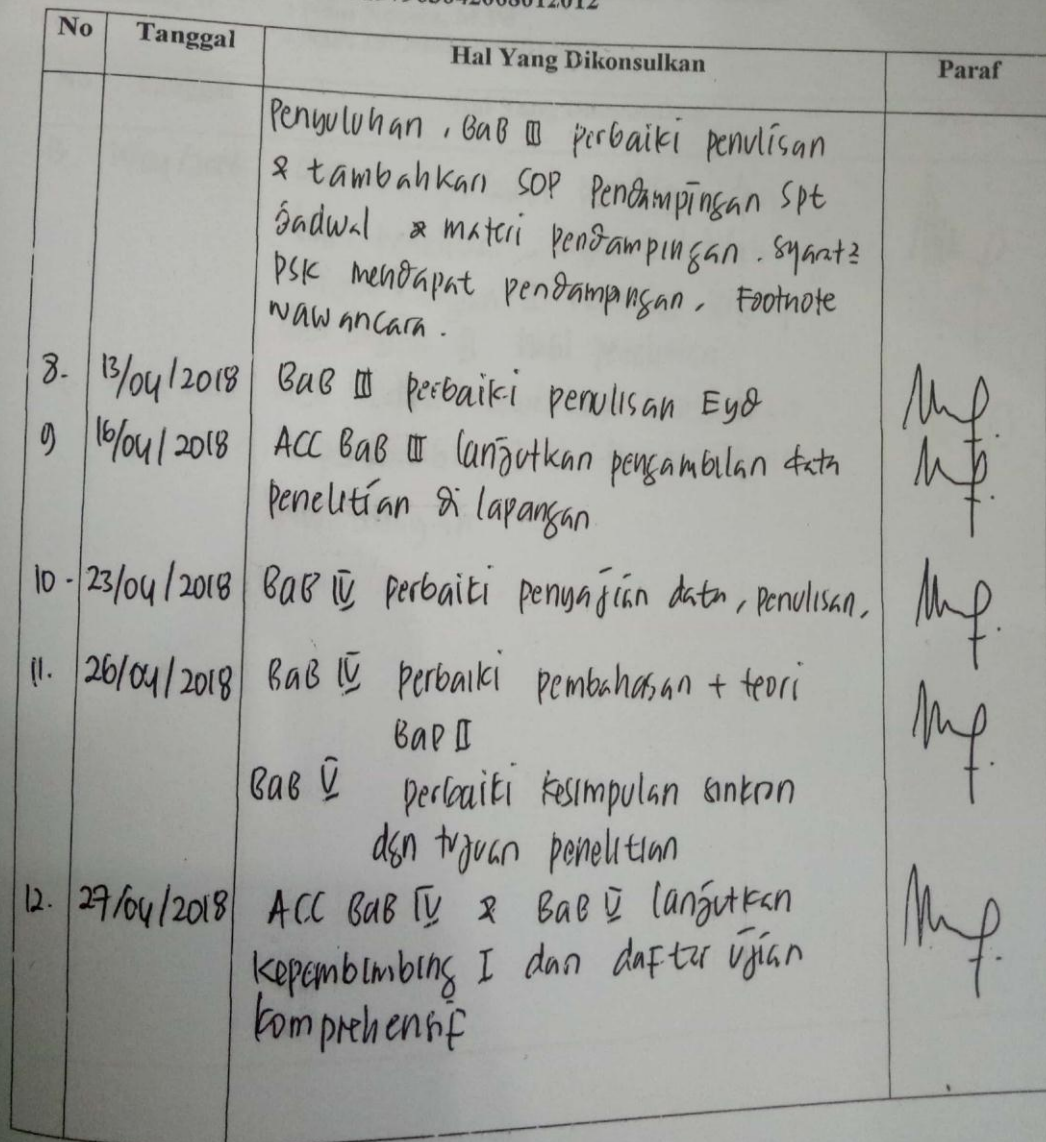 No Tanggal Hal Yang Dikonsulkan Paraf
Penyuluhan, BaB III perbaiki penulisan
& tambahkan SOP Pendampingan Spt
Jadwal & materi pendampingan. Syarat2
PSK mendapat pendampingan, Footnote
wawancara.
8. 13/04/2018 BaB III perbaiki penulisan Eyd
9 16/04/2018 ACC BaB III lanjutkan pengambilan data
penelitian di lapangan
10. 23/04/2018 BaB IV perbaiki penyajian data, penulisan,
11. 26/04/2018 BaB IV perbaiki pembahasan + teori
BaP II
BaB V perbaiki kesimpulan sinkron
dgn tujuan penelitian
12. 27/04/2018 ACC BaB IV & BaB V lanjutkan
kepembimbing I dan daftar ujian
komprehensif